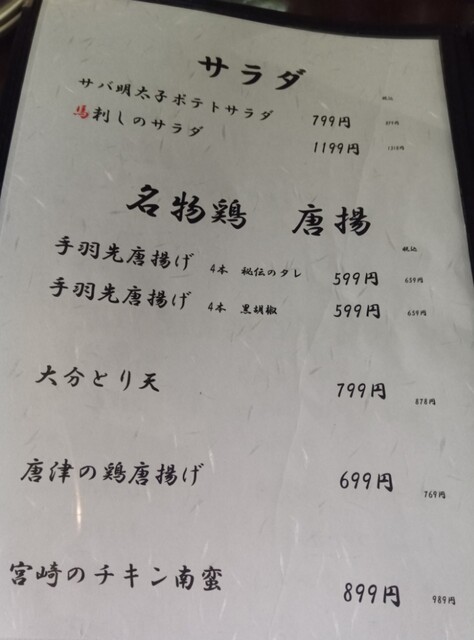 サラダ
税込
サバ明太子ポテトサラダ 799円
馬刺しのサラダ 1199円 1318円
名物鶏 唐揚
税込
手羽先唐揚げ 4本 秘伝のタレ 599円 659円
手羽先唐揚げ 4本 黒胡椒 599円 659円
大分とり天 799円 878円
唐津の鶏唐揚げ 699円 769円
宮崎のチキン南蛮 899円 989円